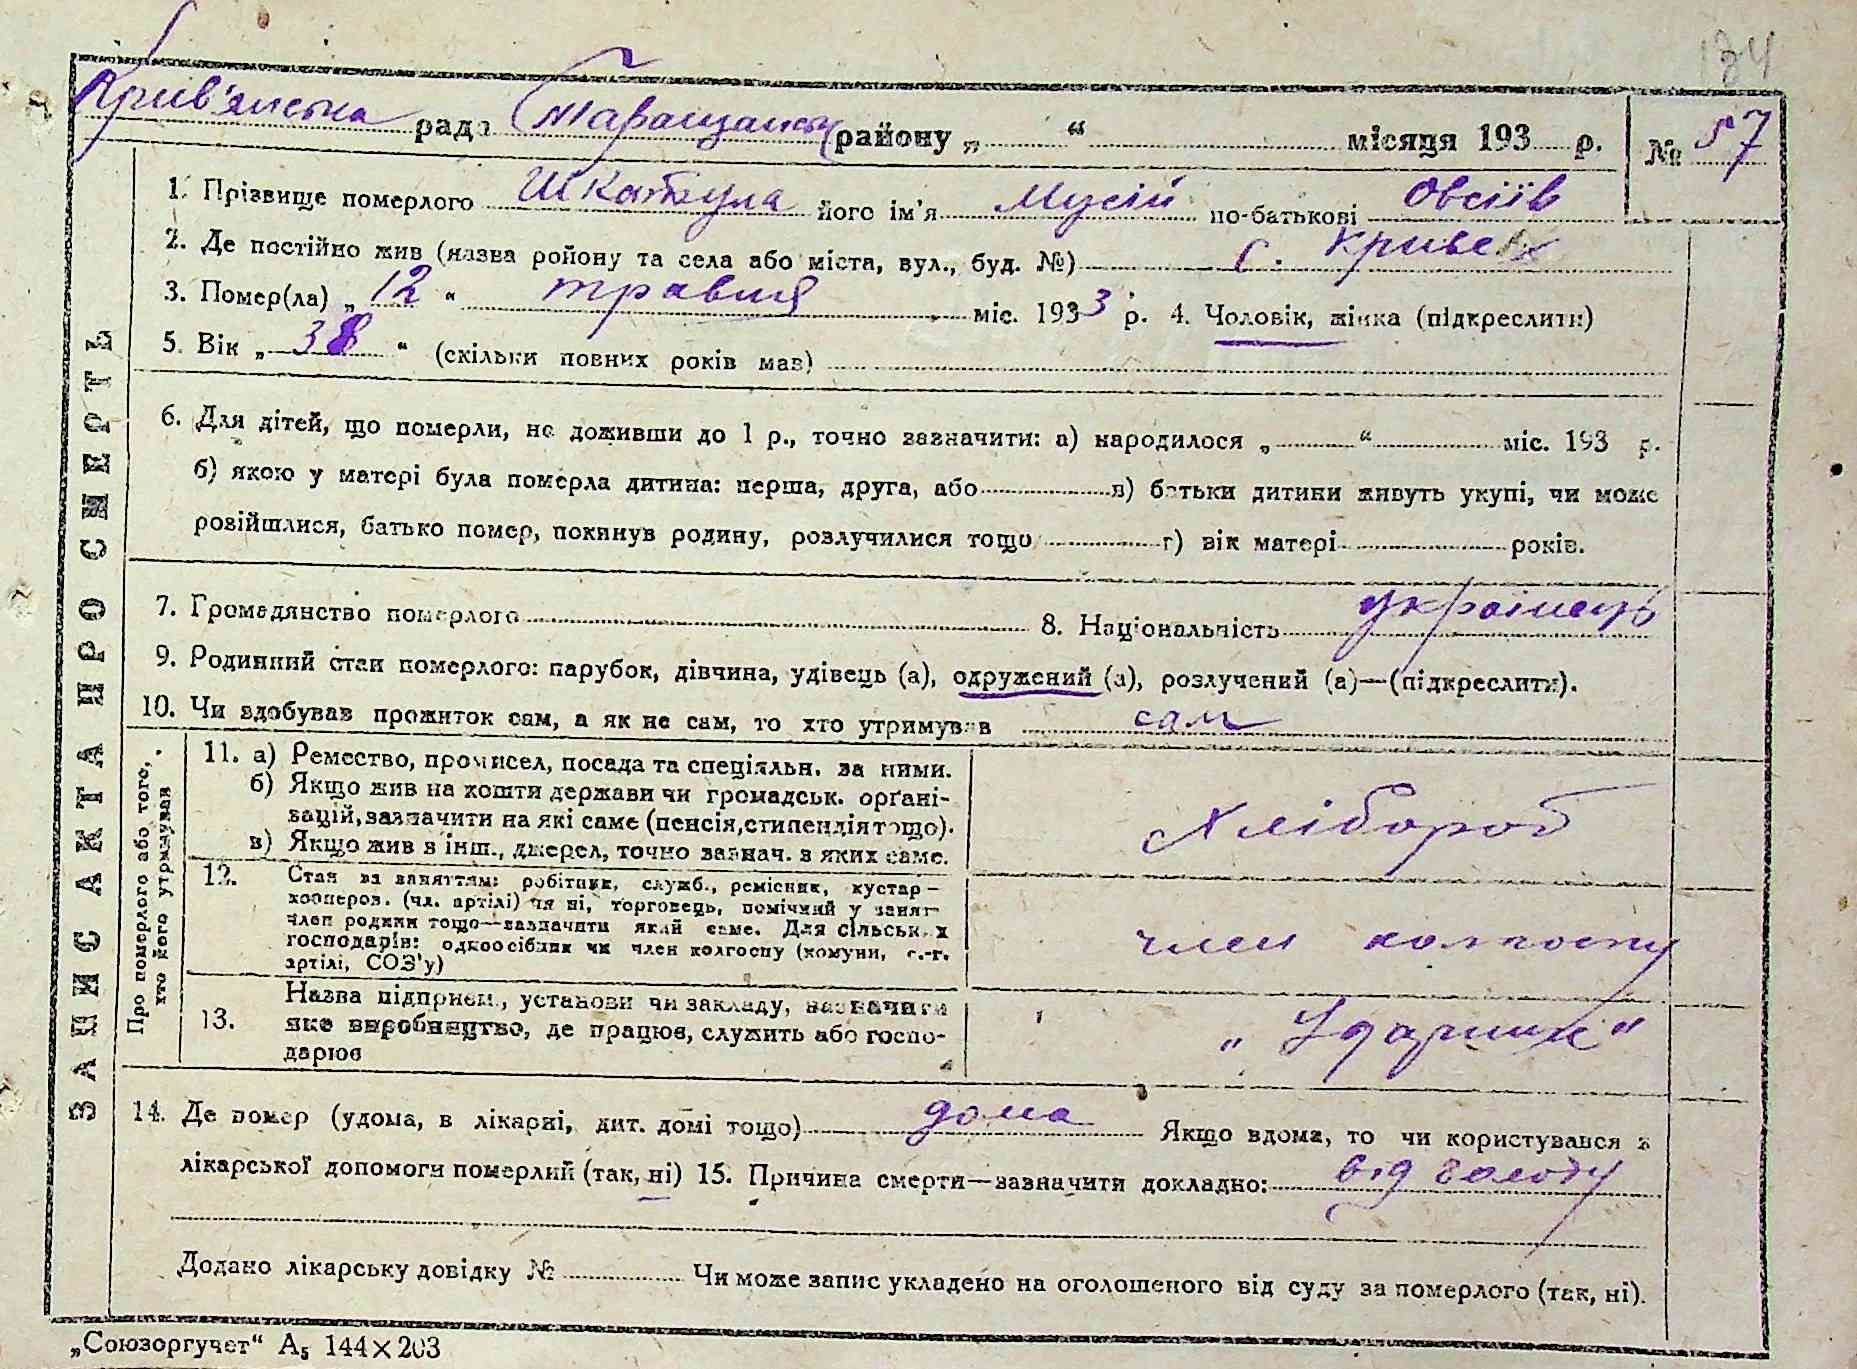 134
Крив'янська рада Таращанськ району „ “ місяця 193 р. № 57
1. Прізвище померлого Шкатула його ім'я Мусій по-батькові Овсіїв
2. Де постійно жив (назва ройону та села або міста, вул., буд. №) с. Криве
3. Помер(ла) „ 12 “ травня міс. 1933 р. 4. Чоловік, жінка (підкреслити)
5. Вік „ 38 “ (скільки повних років мав)
6. Для дітей, що померли, не доживши до 1 р., точно зазначити: а) народилося „ “ міс. 193 р.
б) якою у матері була померла дитина: перша, друга, або в) батьки дитини живуть укупі, чи може
розійшлися, батько помер, покинув родину, розлучилися тощо г) вік матері років.
7. Громадянство померлого 8. Національність українець
9. Родинний стан померлого: парубок, дівчина, удівець (а), одружений (а), розлучений (а)—(підкреслити).
10. Чи здобував прожиток сам, а як не сам, то хто утримував сам
11. а) Ремество, промисел, посада та спеціяльн. за ними.
б) Якщо жив на кошти держави чи громадськ. орґані-
зацій, зазначити на які саме (пенсія, стипендія тощо).
в) Якщо жив з інш., джерел, точно зазнач. з яких саме.
Хлібороб
12. Стан за заняттям: робітник, служб., ремісник, кустар—
кооперов. (чл. артілі) чи ні, торговець, помічний у занят—
член родини тощо—зазначити який саме. Для сільських
господарів: одноосібник чи член колгоспу (комуни, с.-г.
артілі, СОЗ'у)
член колгоспу
13. Назва підприєм., установи чи закладу, зазначити
яке виробництво, де працює, служить або госпо-
дарює
„Ударник“
14. Де помер (удома, в лікарні, дит. домі тощо) дома Якщо вдома, то чи користувався з
лікарської допомоги померлий (так, ні) 15. Причина смерти—зазначити докладно: від голоду
Додано лікарську довідку № Чи може запис укладено на оголошеного від суду за померлого (так, ні).
ЗАПИС АКТА ПРО СМЕРТЬ
Про померлого або того,
хто його утримував
„Союзоргучет“ А₅ 144×203